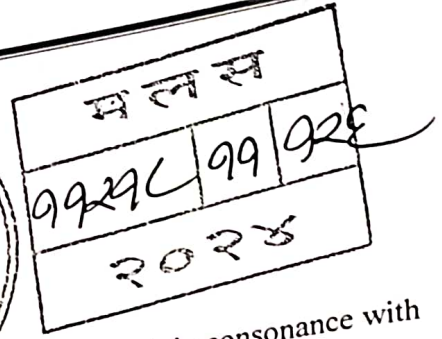 म ल स
११२१८ ११ १२६
२०२४
consonance with